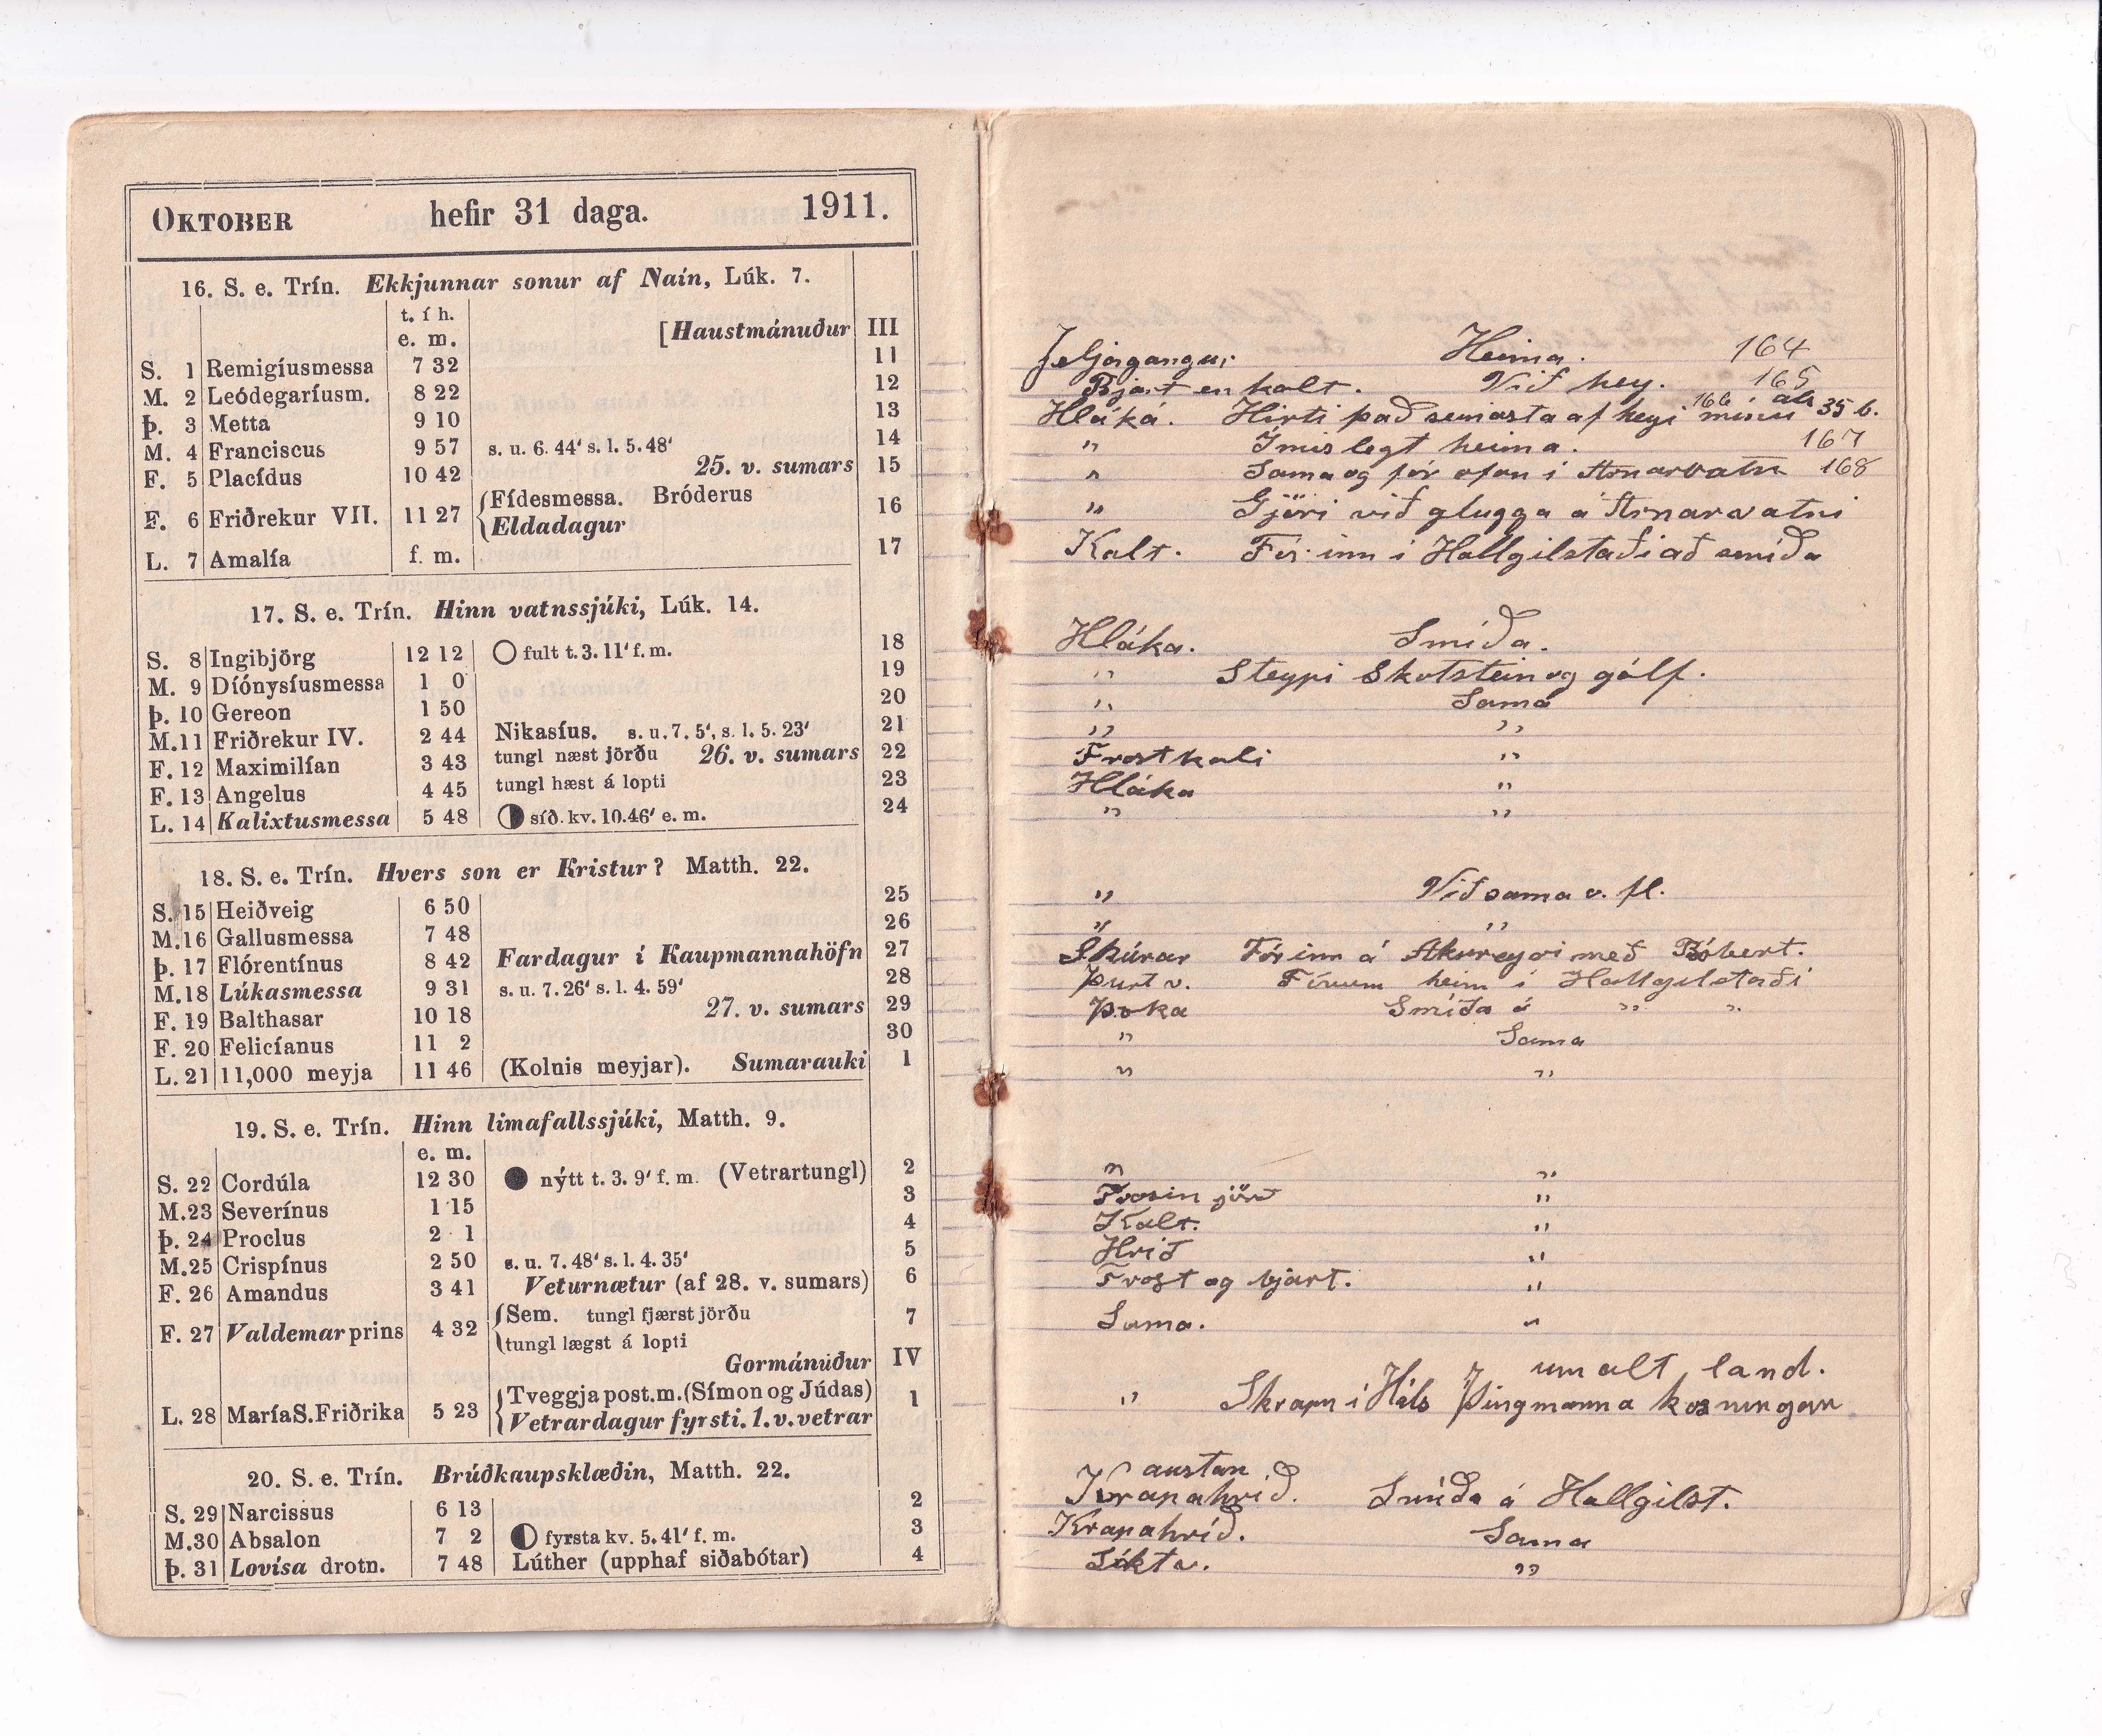 OKTOBER hefir 31 daga. 1911.
16. S. e. Trín. Ekkjunnar sonur af Naín, Lúk. 7.
t. í h.
e. m. [Haustmánuður III
S. 1 Remigíusmessa 7 32 11
M. 2 Leódegaríusm. 8 22 12
Þ. 3 Metta 9 10 13
M. 4 Franciscus 9 57 s. u. 6. 44' s. l. 5. 48' 14
F. 5 Placídus 10 42 25. v. sumars 15
F. 6 Friðrekur VII. 11 27 Fídesmessa. Bróderus 16
Eldadagur
L. 7 Amalía f. m. 17
17. S. e. Trín. Hinn vatnssjúki, Lúk. 14.
S. 8 Ingibjörg 12 12 ○ fult t. 3. 11' f. m. 18
M. 9 Díónysíusmessa 1 0 19
Þ. 10 Gereon 1 50 20
M. 11 Friðrekur IV. 2 44 Nikasíus. s. u. 7. 5', s. l. 5. 23' 21
F. 12 Maximilían 3 43 tungl næst jörðu 26. v. sumars 22
F. 13 Angelus 4 45 tungl hæst á lopti 23
L. 14 Kalixtusmessa 5 48 ◑ síð. kv. 10. 46' e. m. 24
18. S. e. Trín. Hvers son er Kristur? Matth. 22.
S. 15 Heiðveig 6 50 25
M. 16 Gallusmessa 7 48 26
Þ. 17 Flórentínus 8 42 Fardagur í Kaupmannahöfn 27
M. 18 Lúkasmessa 9 31 s. u. 7. 26' s. l. 4. 59' 28
F. 19 Balthasar 10 18 27. v. sumars 29
F. 20 Felicíanus 11 2 30
L. 21 11,000 meyja 11 46 (Kolnis meyjar). Sumarauki 1
19. S. e. Trín. Hinn limafallssjúki, Matth. 9.
e. m.
S. 22 Cordúla 12 30 ● nýtt t. 3. 9' f. m. (Vetrartungl) 2
M. 23 Severínus 1 15 3
Þ. 24 Proclus 2 1 4
M. 25 Crispínus 2 50 s. u. 7. 48' s. l. 4. 35' 5
F. 26 Amandus 3 41 Veturnætur (af 28. v. sumars) 6
F. 27 Valdemar prins 4 32 Sem. tungl fjærst jörðu 7
tungl lægst á lopti
Gormánuður IV
L. 28 María S. Friðrika 5 23 Tveggja post. m. (Símon og Júdas) 1
Vetrardagur fyrsti. 1. v. vetrar
20. S. e. Trín. Brúðkaupsklæðin, Matth. 22.
S. 29 Narcissus 6 13 2
M. 30 Absalon 7 2 ◐ fyrsta kv. 5. 41' f. m. 3
Þ. 31 Lovísa drotn. 7 48 Lúther (upphaf siðabótar) 4
Jeljagangur Heima. 164
Bjart en kalt. Við hey. 165
Hláká. Hirti það seinasta af heyi mínu 166 als 35 b.
" Ímislegt heima. 167
" Sama og fór ofan í Arnarvatn 168
" Gjöri við glugga á Arnarvatni
Kalt. Fór inn í Hallgilstaði að smíða
Hláka. Smíða.
" Steypi Skotstein og gólf.
" Sama
" "
Frostkali "
Hláka "
" "
" Við sama v. fl.
" "
Skúrar Fór inn á Akureyri með Róbert.
Þurt v. Fórum heim í Hallgilstaði
Þoka Smíða á " "
" Sama
" "
" "
Frosin jörð "
Kalt. "
Hríð "
Frost og bjart. "
Sama. "
" Skrapp í Háls Þingmanna kosningar
um alt land.
austan
Krapahríð. Smíða á Hallgilst.
Krapahríð. Sama
Líkt v. "